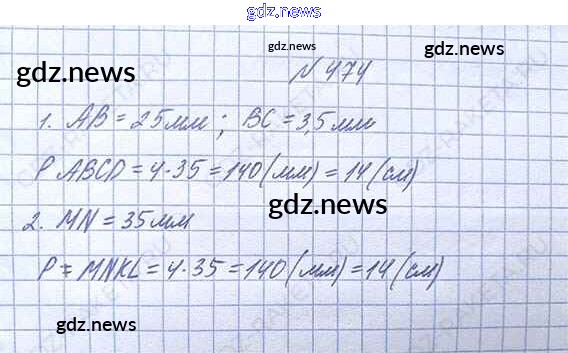 gdz.news
gdz.news
gdz.news
gdz.news
№ 474
1. AB = 25мм ; BC = 3,5 мм
P ABCD = 4·35 = 140 (мм) = 14 (см)
gdz.news
2. MN = 35 мм
P = MNKL = 4·35 = 140 (мм) = 14 (см)
gdz.news
gdz.news